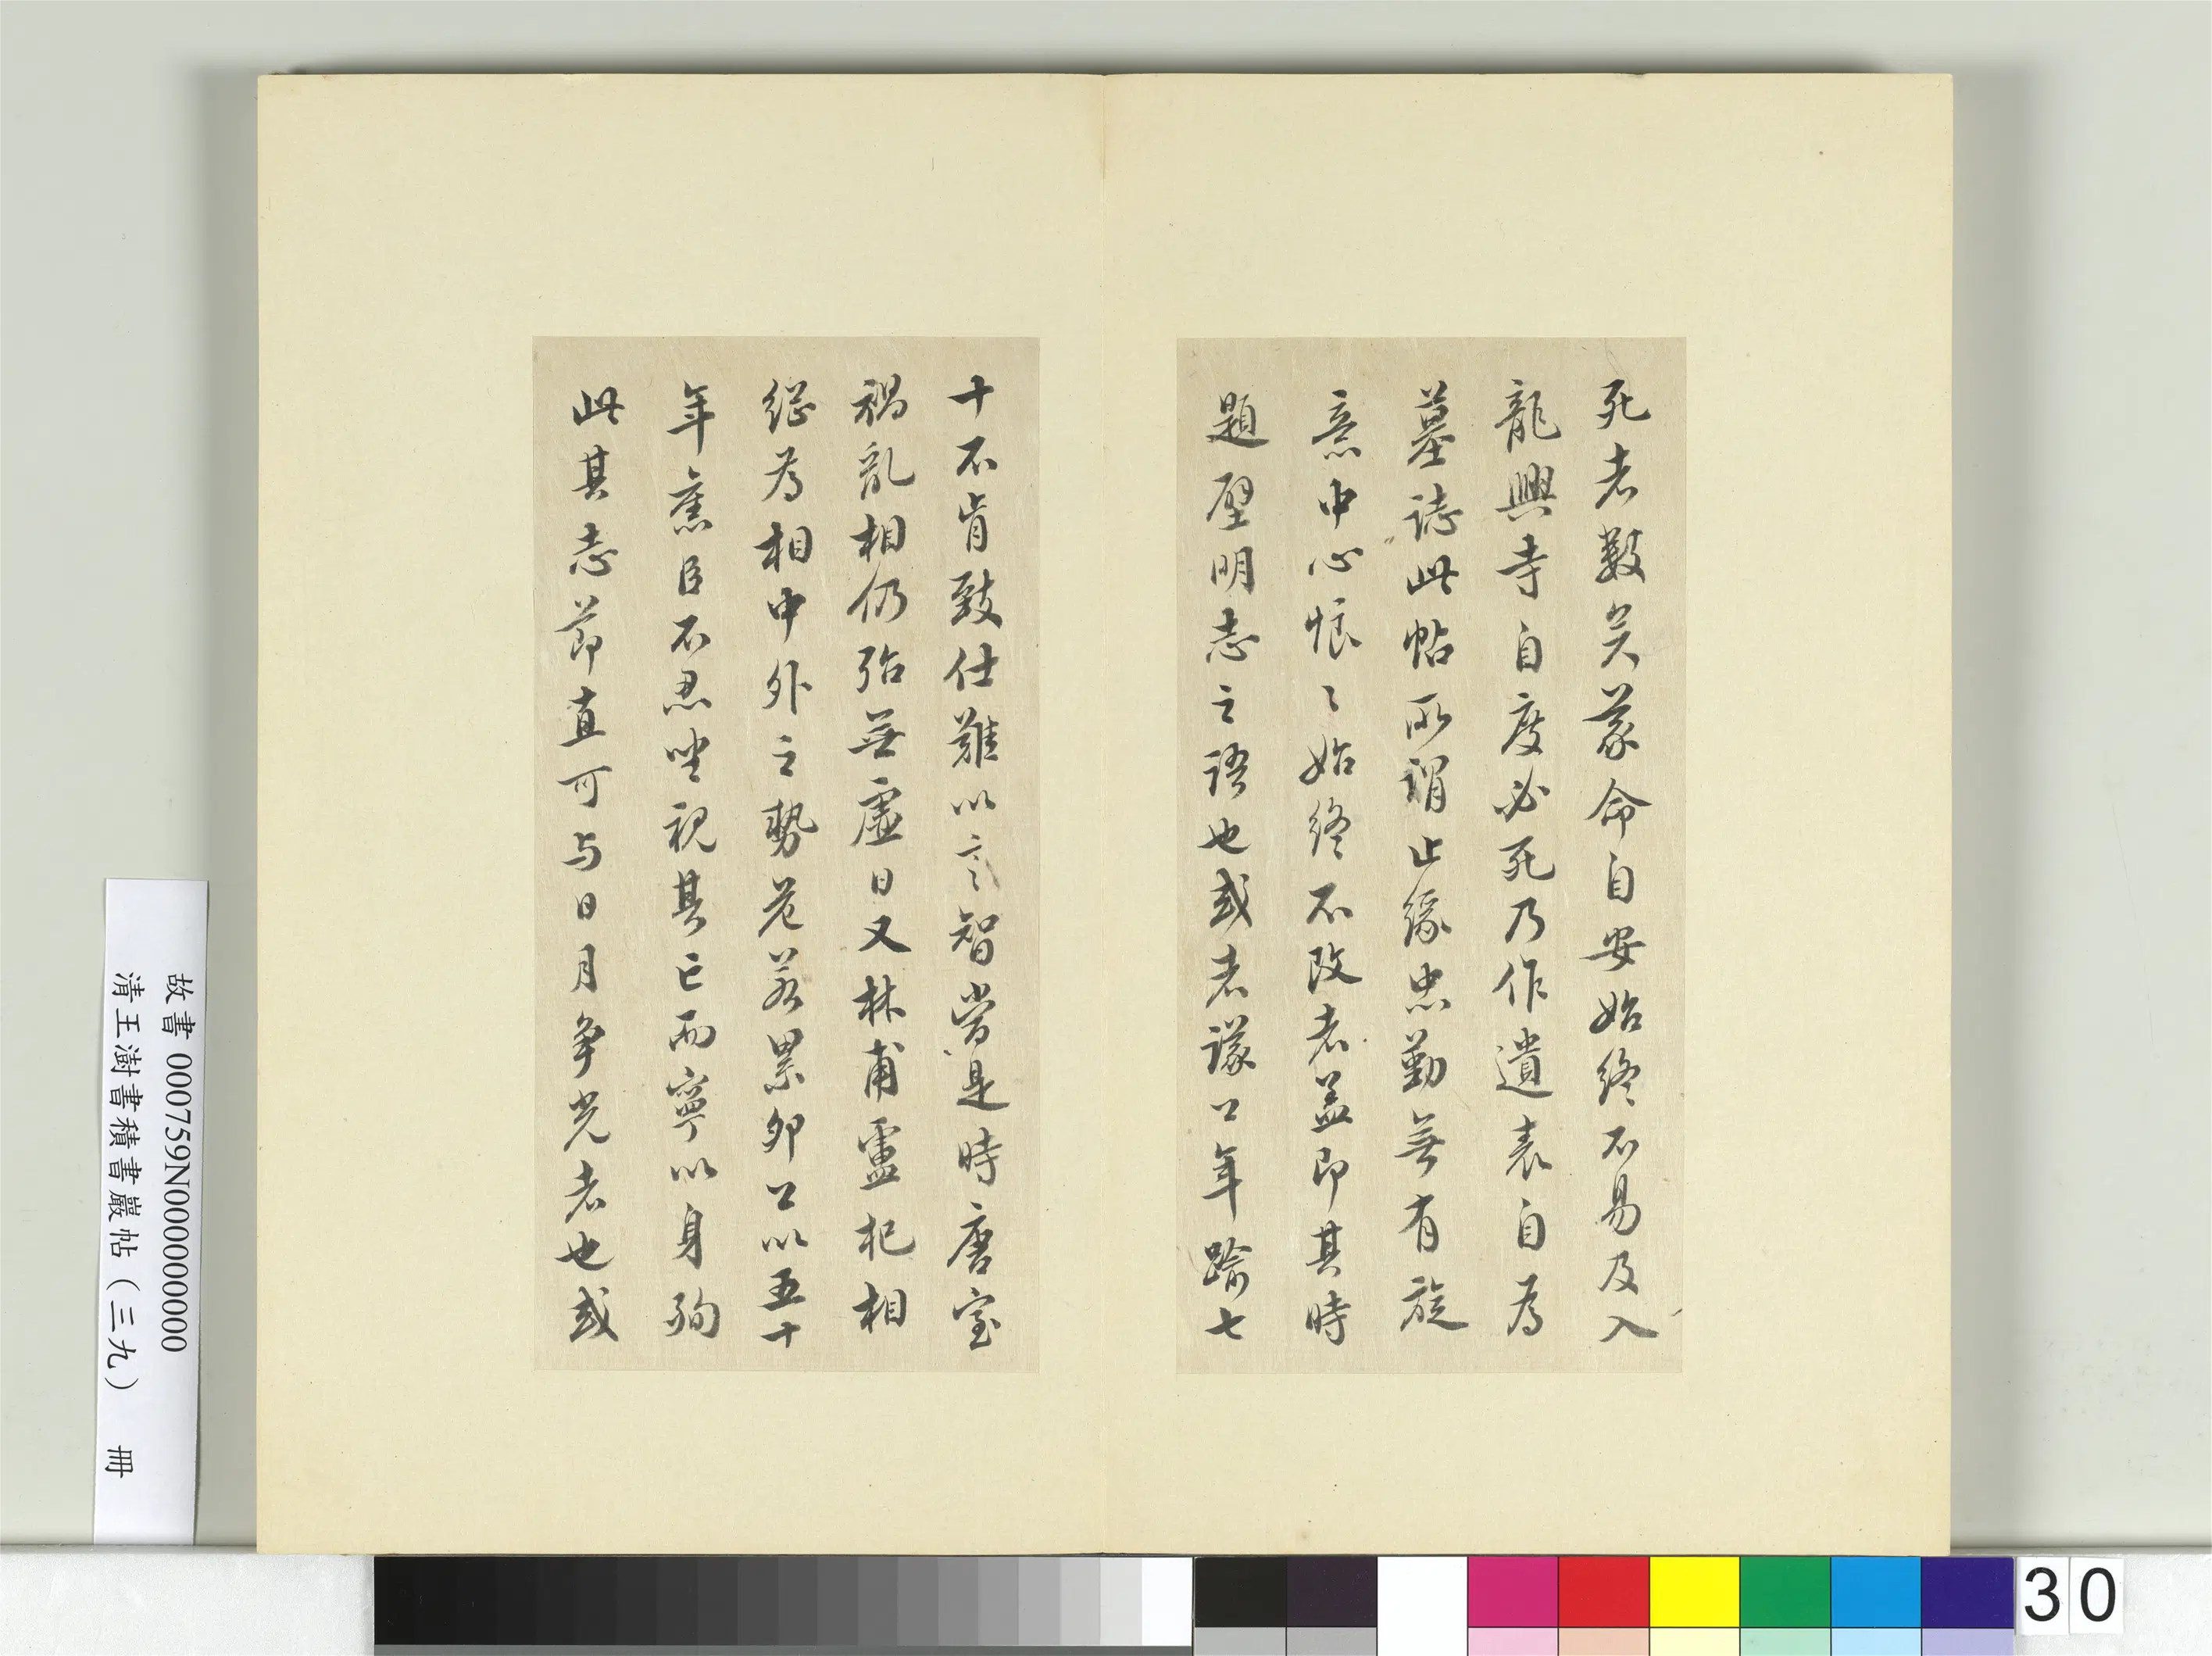 死者數矣蒙命自安始終不易及入
龍興寺自度必死乃作遺表自為
墓誌此帖所謂止緣忠勤無有旋
意中心悵々始終不改者蓋即其時
題壁明志之語也或者議公年踰七
十不肯致仕難以言智當是時唐室
禍亂相仍殆無虛日又林甫盧杞相
繼為相中外之勢危若累卵公以五十
年舊臣不忍坐視其亡而寧以身殉
此其志節直可与日月爭光者也或
故書 000759N000000000
清王澍書積書巖帖（三九） 冊
30